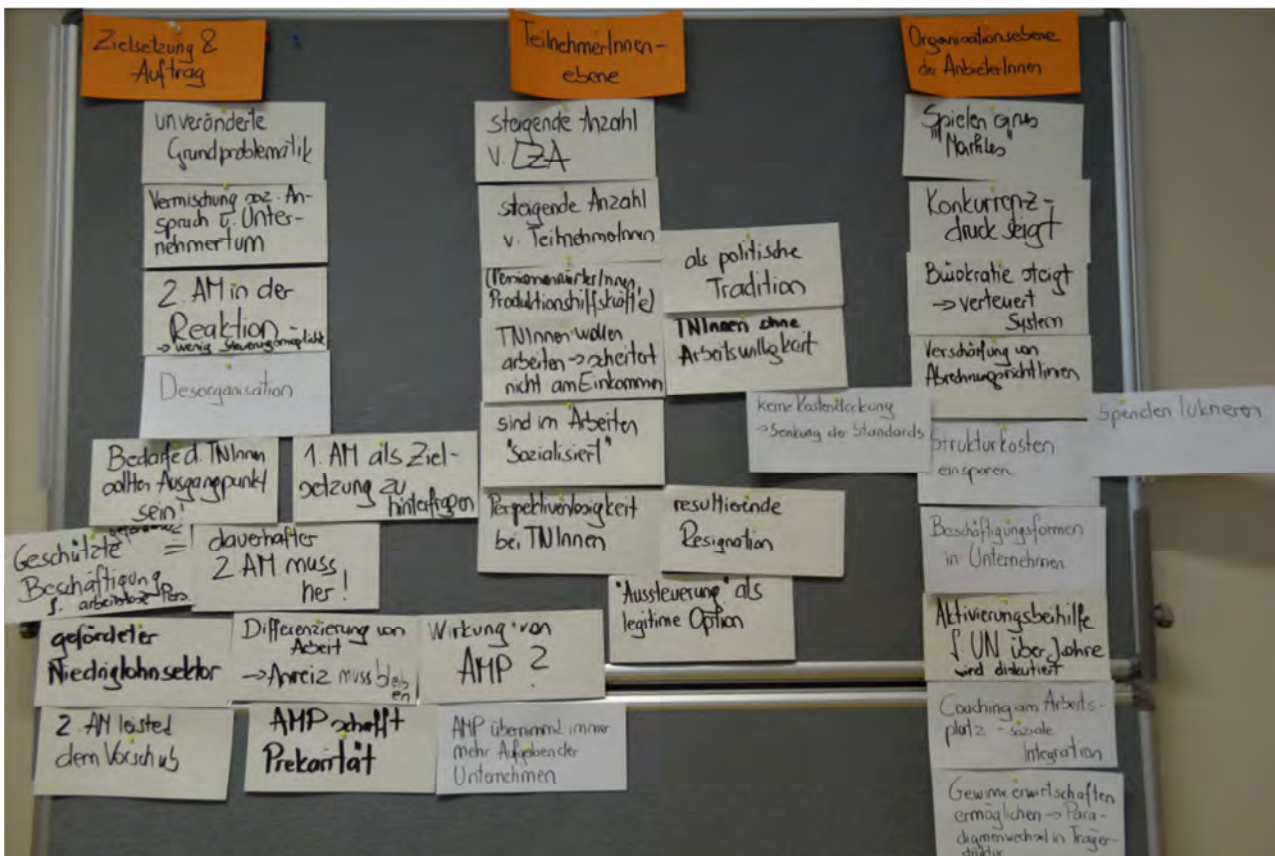 Zielsetzung &
Auftrag
unveränderte
Grundproblematik
Vermischung soz. An-
spruch u. Unter-
nehmertum
2. AM in der
Reaktion
→ wenig
Desorganisation
Bedarfe d. TNInnen
sollten Ausgangpunkt
sein!
1. AM als Ziel-
setzung zu
hinterfragen
Geschützte =
Beschäftigung
f. arbeitslose Pers.
dauerhafter
2. AM muss
her!
geförderter
Niedriglohnsektor
Differenzierung von
Arbeit
→ Anreiz muss bleib
en
Wirkung von
AMP ?
2. AM leisted
dem Vorschub
AMP schafft
Prekarität
AMP übernimmt immer
mehr Aufgaben der
Unternehmen
TeilnehmerInnen-
ebene
steigende Anzahl
v. LZA
steigende Anzahl
v. TeilnehmerInnen
(PensionswärterInnen,
Produktionshilfskräfte)
als politische
Tradition
TNInnen wollen
arbeiten → scheitert
nicht am Einkommen
TNInnen ohne
Arbeitswilligkeit
sind im Arbeiten
"sozialisiert"
Perspektivenlosigkeit
bei TNInnen
resultierende
Resignation
"Aussteuerung" als
legitime Option
Organisationsebene
der AnbieterInnen
Spielen eines
"Marktes"
Konkurrenz-
druck steigt
Bürokratie steigt
→ verteuert
System
Verschärfung von
Abrechnungsrichtlinien
keine Kostendeckung
→ Senkung der Standards
Strukturkosten
einsparen
Spenden lukrieren
Beschäftigungsformen
in Unternehmen
Aktivierungsbeihilfe
f UN über Jahre
wird diskutiert
Coaching am Arbeits-
platz - soziale
Integration
Gewinne erwirtschaften
ermöglichen → Para-
digmenwechsel in Träger-
struktur